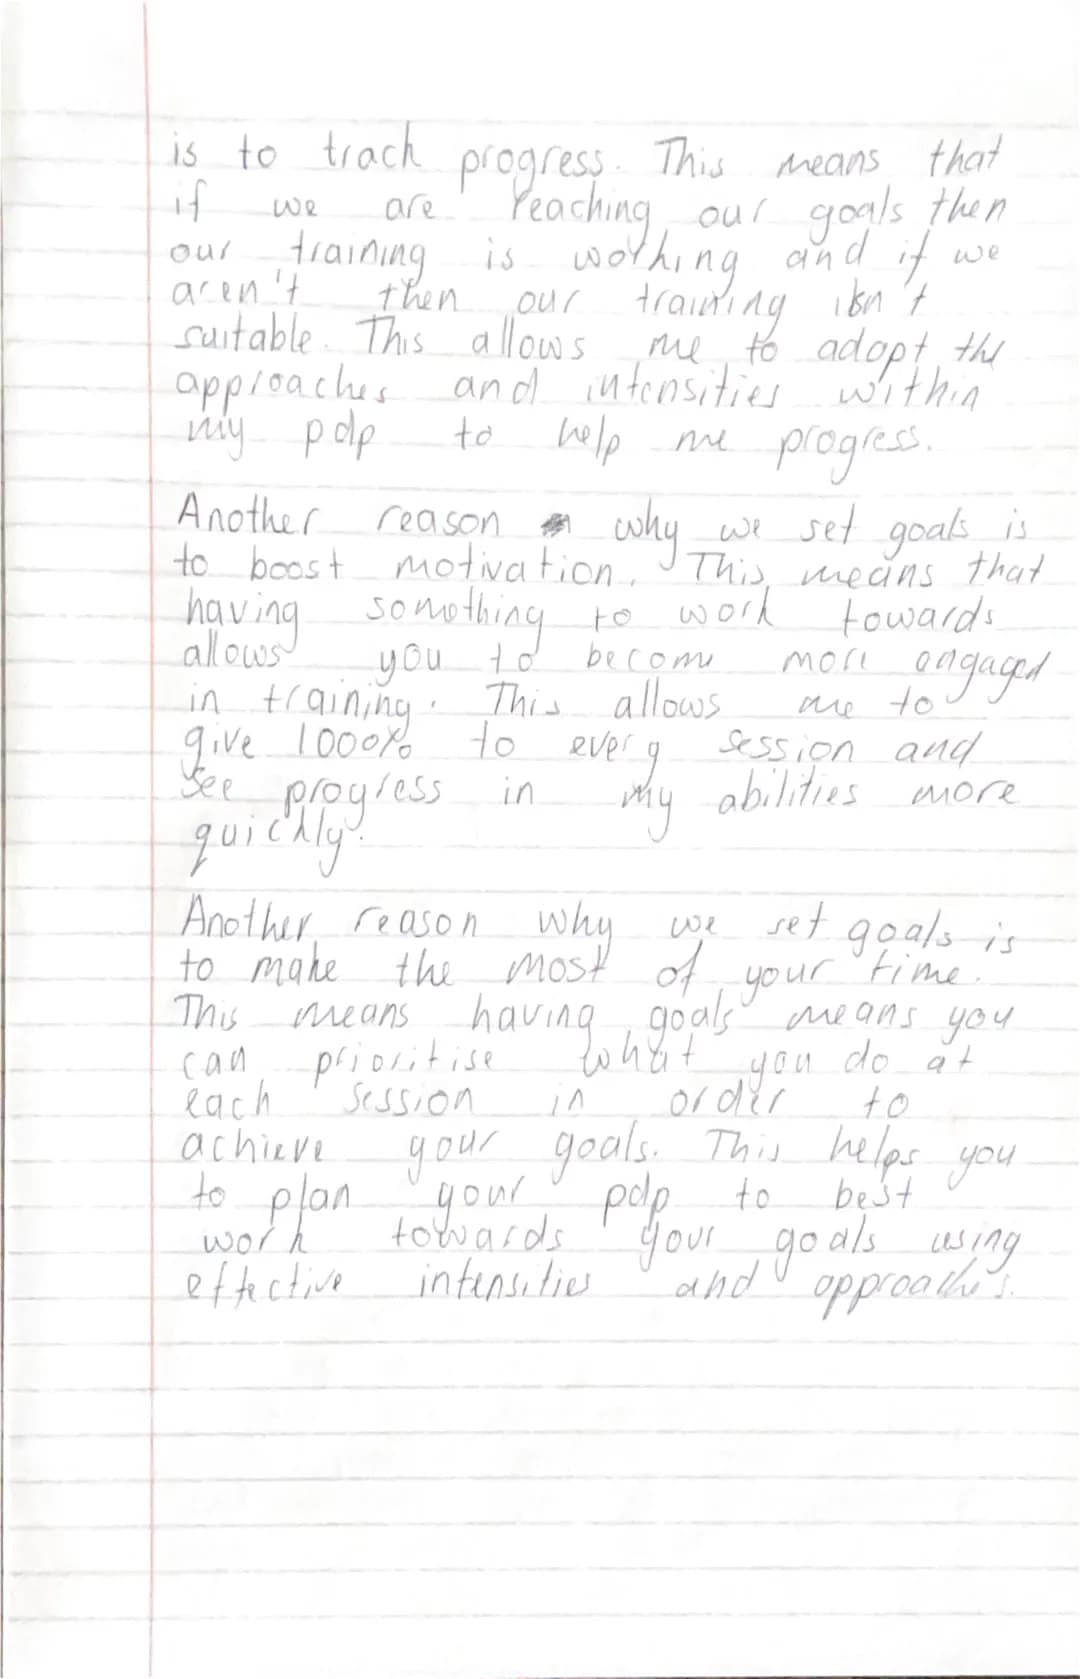 is to track progress. This means that
if we are reaching our goals then
our training is working and if we
aren't then our training isn't
suitable. This allows me to adapt the
approaches and intensities within
my pdp to help me progress.
Another reason why we set goals is
to boost motivation. This means that
having something to work towards
allows you to become more engaged
in training. This allows me to
give 1000% to every session and
see progress in my abilities more
quickly.
Another reason why we set goals is
to make the most of your time.
This means having goals means you
can prioritise what you do at
each session in order to
achieve your goals. This helps you
to plan your pdp to best
work towards your goals using
effective intensities and approaches.